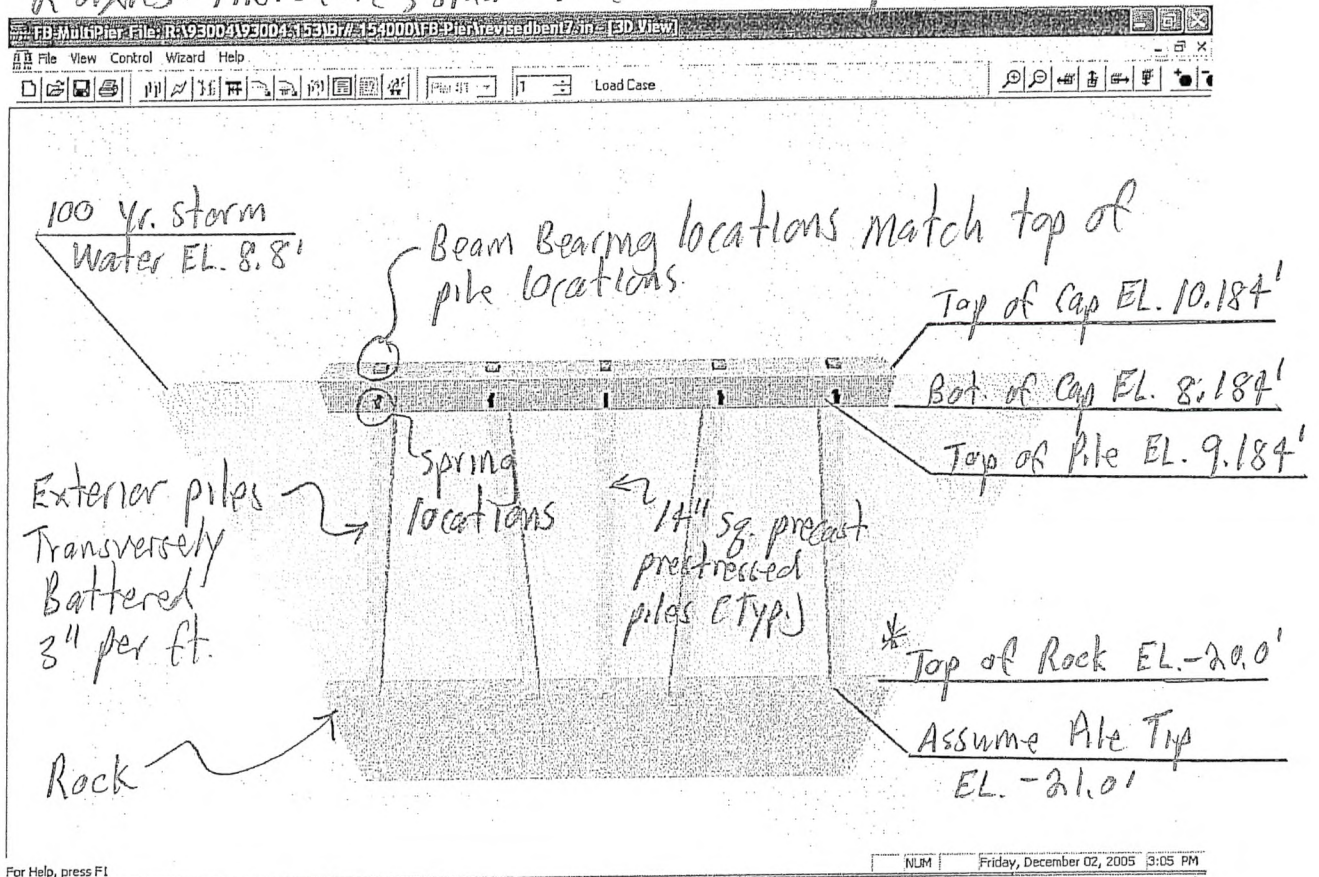 FB-MultiPier File: R:\93004\93004.153\Br# 154000\FB-Pier\revisedbent7.in - [3D View]
File View Control Wizard Help
1 Load Case
100 Yr. Storm
Water EL. 8.8'
Beam Bearing locations match top of
pile locations.
Top of Cap EL. 10.184'
Bot. of Cap EL. 8.184'
Top of Pile EL. 9.184'
Spring
locations
Exterior piles
Transversely
Battered
3" per ft.
14" sq. precast
prestressed
piles (Typ.)
* Top of Rock EL. -20.0'
Assume Pile Tip
EL. -21.0'
Rock
For Help, press F1
NUM Friday, December 02, 2005 3:05 PM